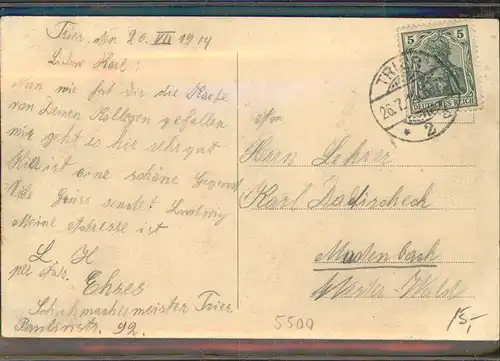 Trier, den 26. VII 1914
Lieber Karl!
Nun wie hat dir die Karte
von Deinen Kollegen gefallen
mir geht es hier sehr gut
hier ist eine schöne Gegend
Viele Grüss sendet Ludwig
Meine Adresse ist
L. H
per Adr.
Ehres
Schuhmachermeister Trier
Paulinstr. 92.
5
5
DEUTSCHES REICH
TRIER
26.7.
* 2
An
Herrn Lehrer
Karl
Madenbach
5500
15,-